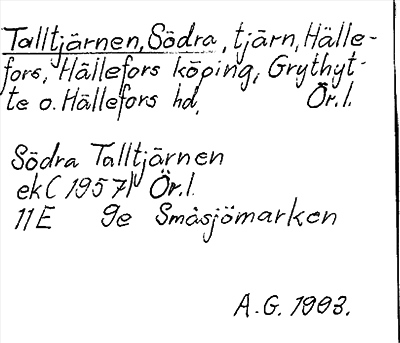 Talltjärnen, Södra, tjärn, Hälle-
fors, Hällefors köping, Grythyt-
te o. Hällefors hd, Ör.l.
Södra Talltjärnen
ek (1957) Ör.l.
11E 9e Småsjömarken
A.G. 1993.